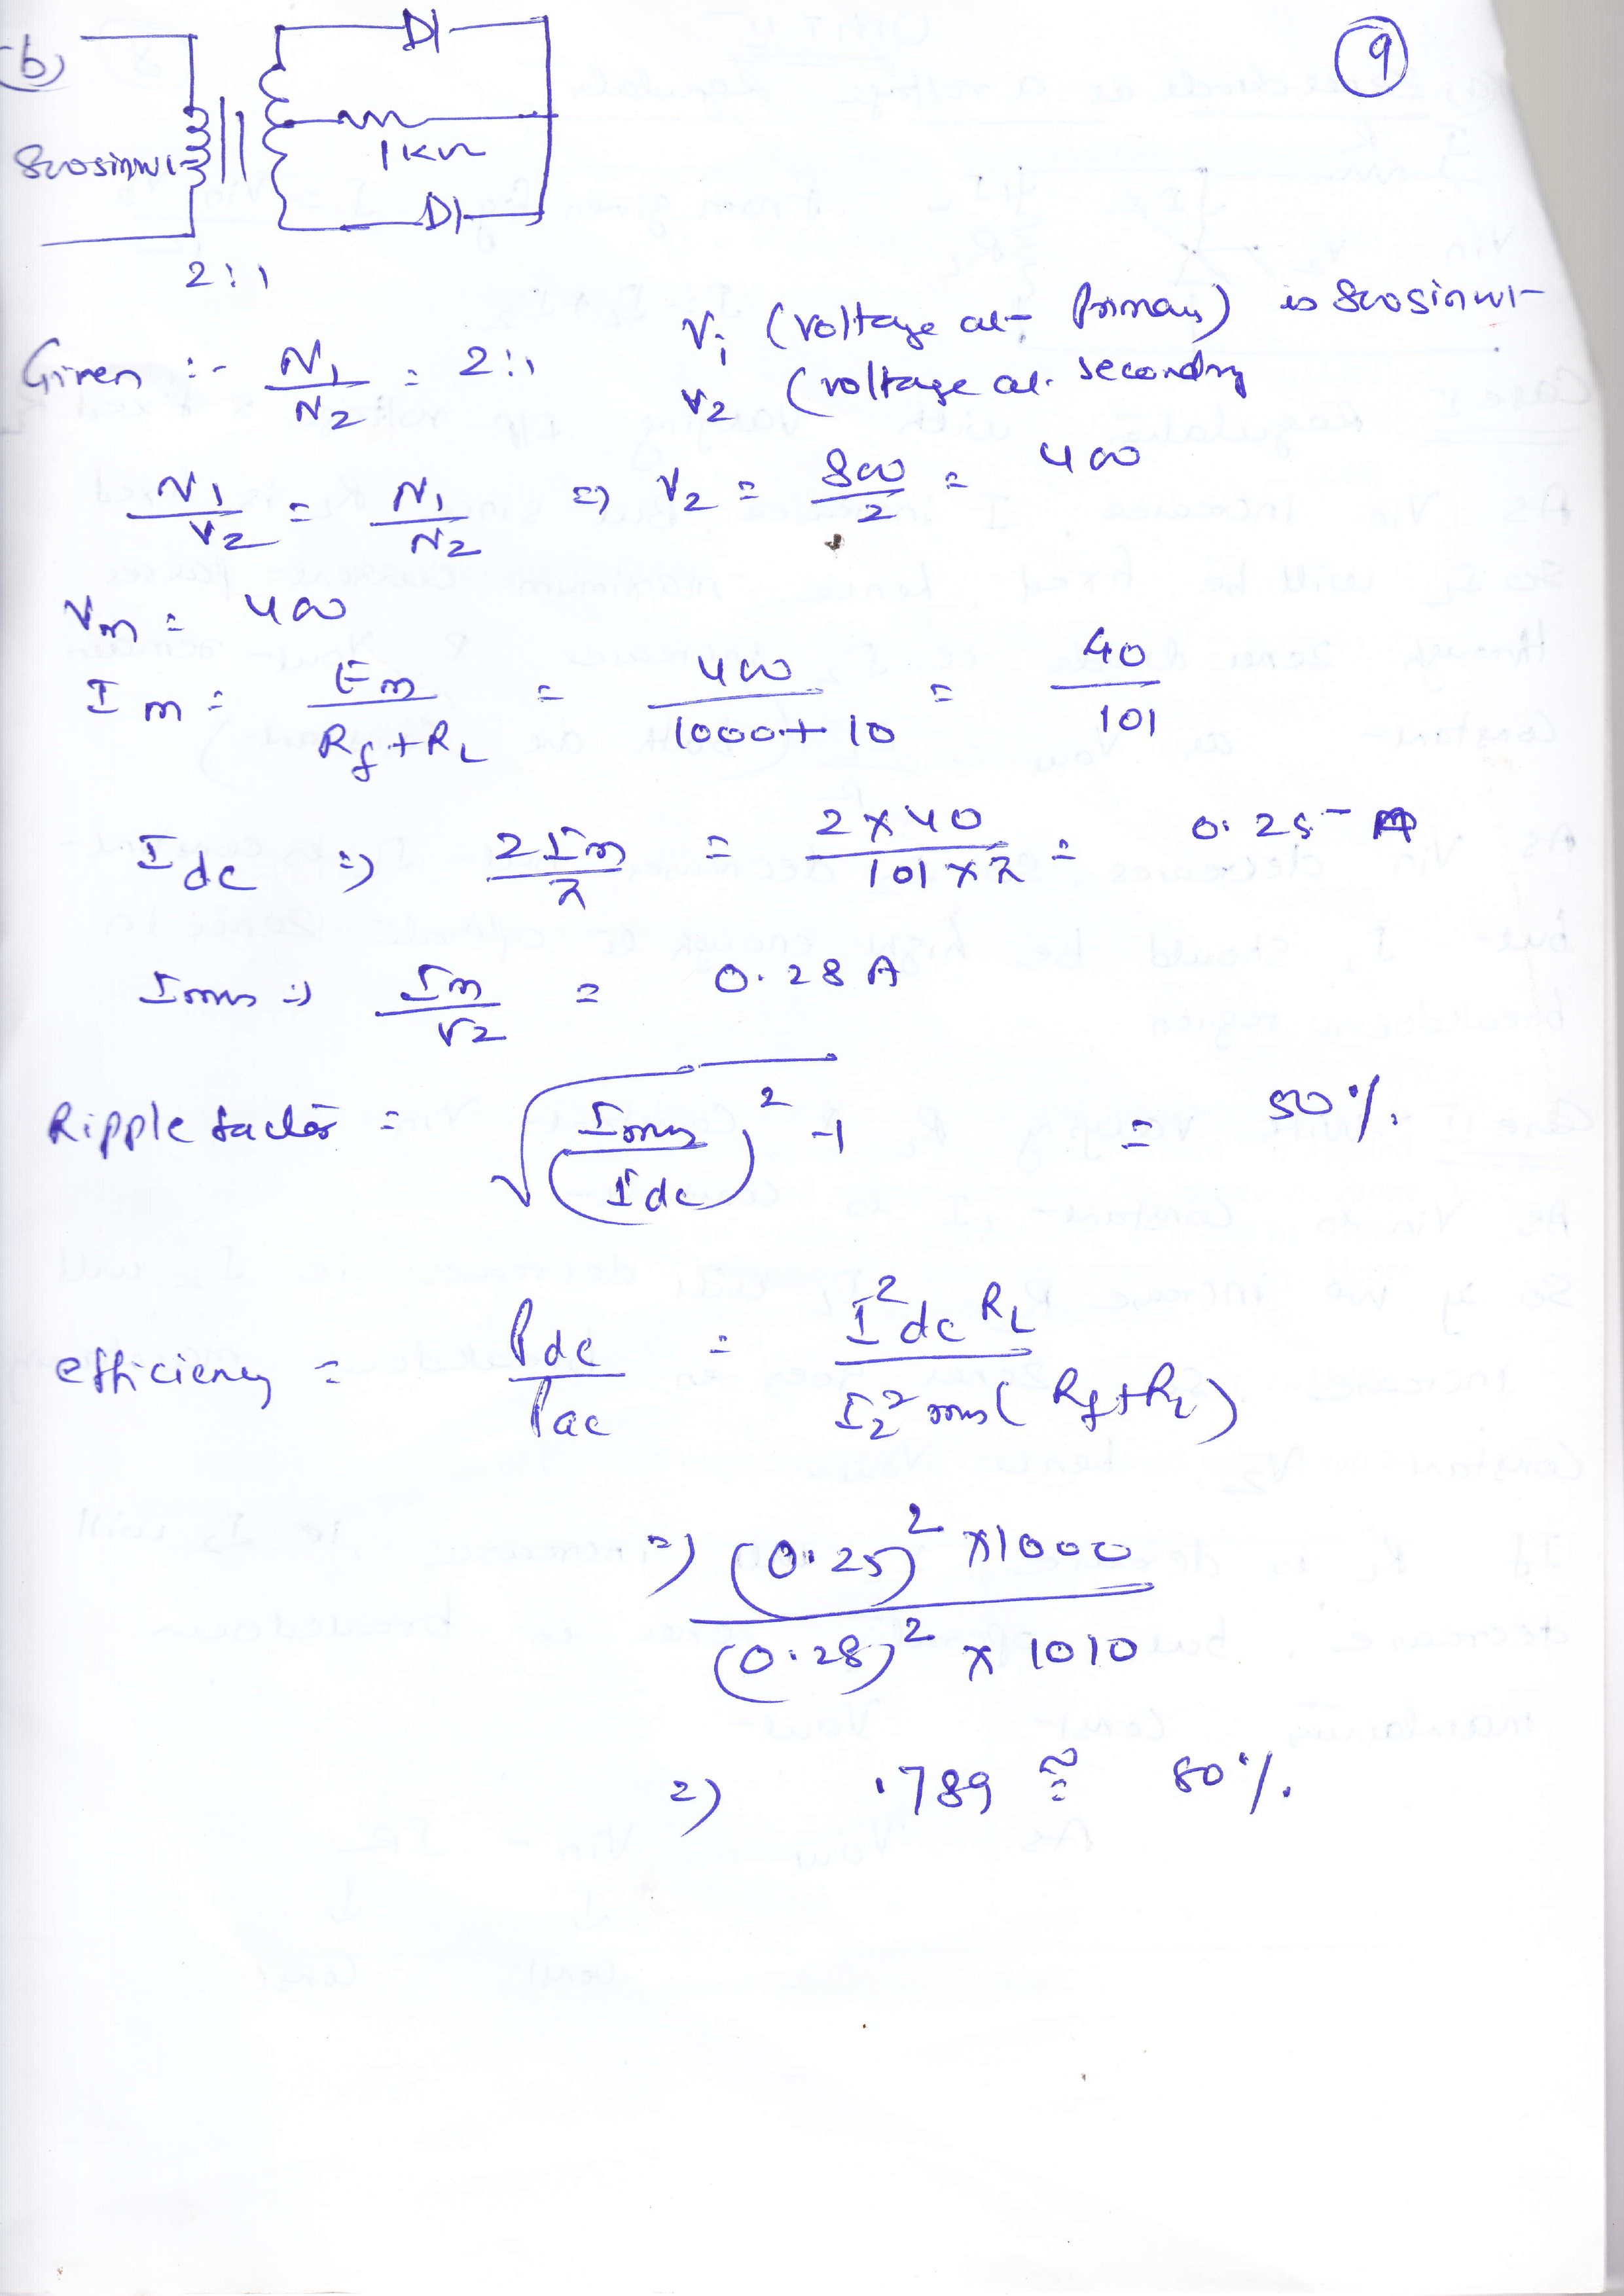 b)
9
800sinwt
1KΩ
2:1
Given :- N1/N2 = 2:1
V1 (voltage at primary) is 800sinwt
V2 (voltage at secondary
V1/V2 = N1/N2 => V2 = 800/2 = 400
Vm = 400
Im = Em/(Rf+RL) = 400/(1000+10) = 40/101
Idc => 2Im/π = 2×40/(101×π) = 0.25 A
Irms => Im/√2 = 0.28 A
Ripple factor = √((Irms/Idc)² -1) = 50%.
efficiency = Pdc/Pac = I²dc RL/(I2²rms(Rf+RL))
=> (0.25)² ×1000/((0.28)² × 1010)
=> .789 ≅ 80%.